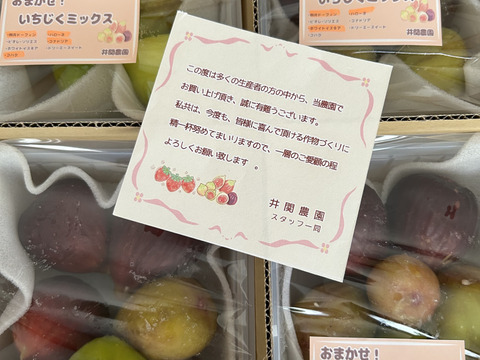 おまかせ！
いちじくミックス
井関農園
この度は多くの生産者の方の中から、当農園で
お買い上げ頂き、誠に有難うございます。
私共は、今度も、皆様に喜んで頂ける作物づくりに
精一杯努めてまいりますので、一層のご愛顧の程
よろしくお願い致します。
井関農園
スタッフ一同
いちじくミックス
井関農園
おまかせ！
おまかせ！